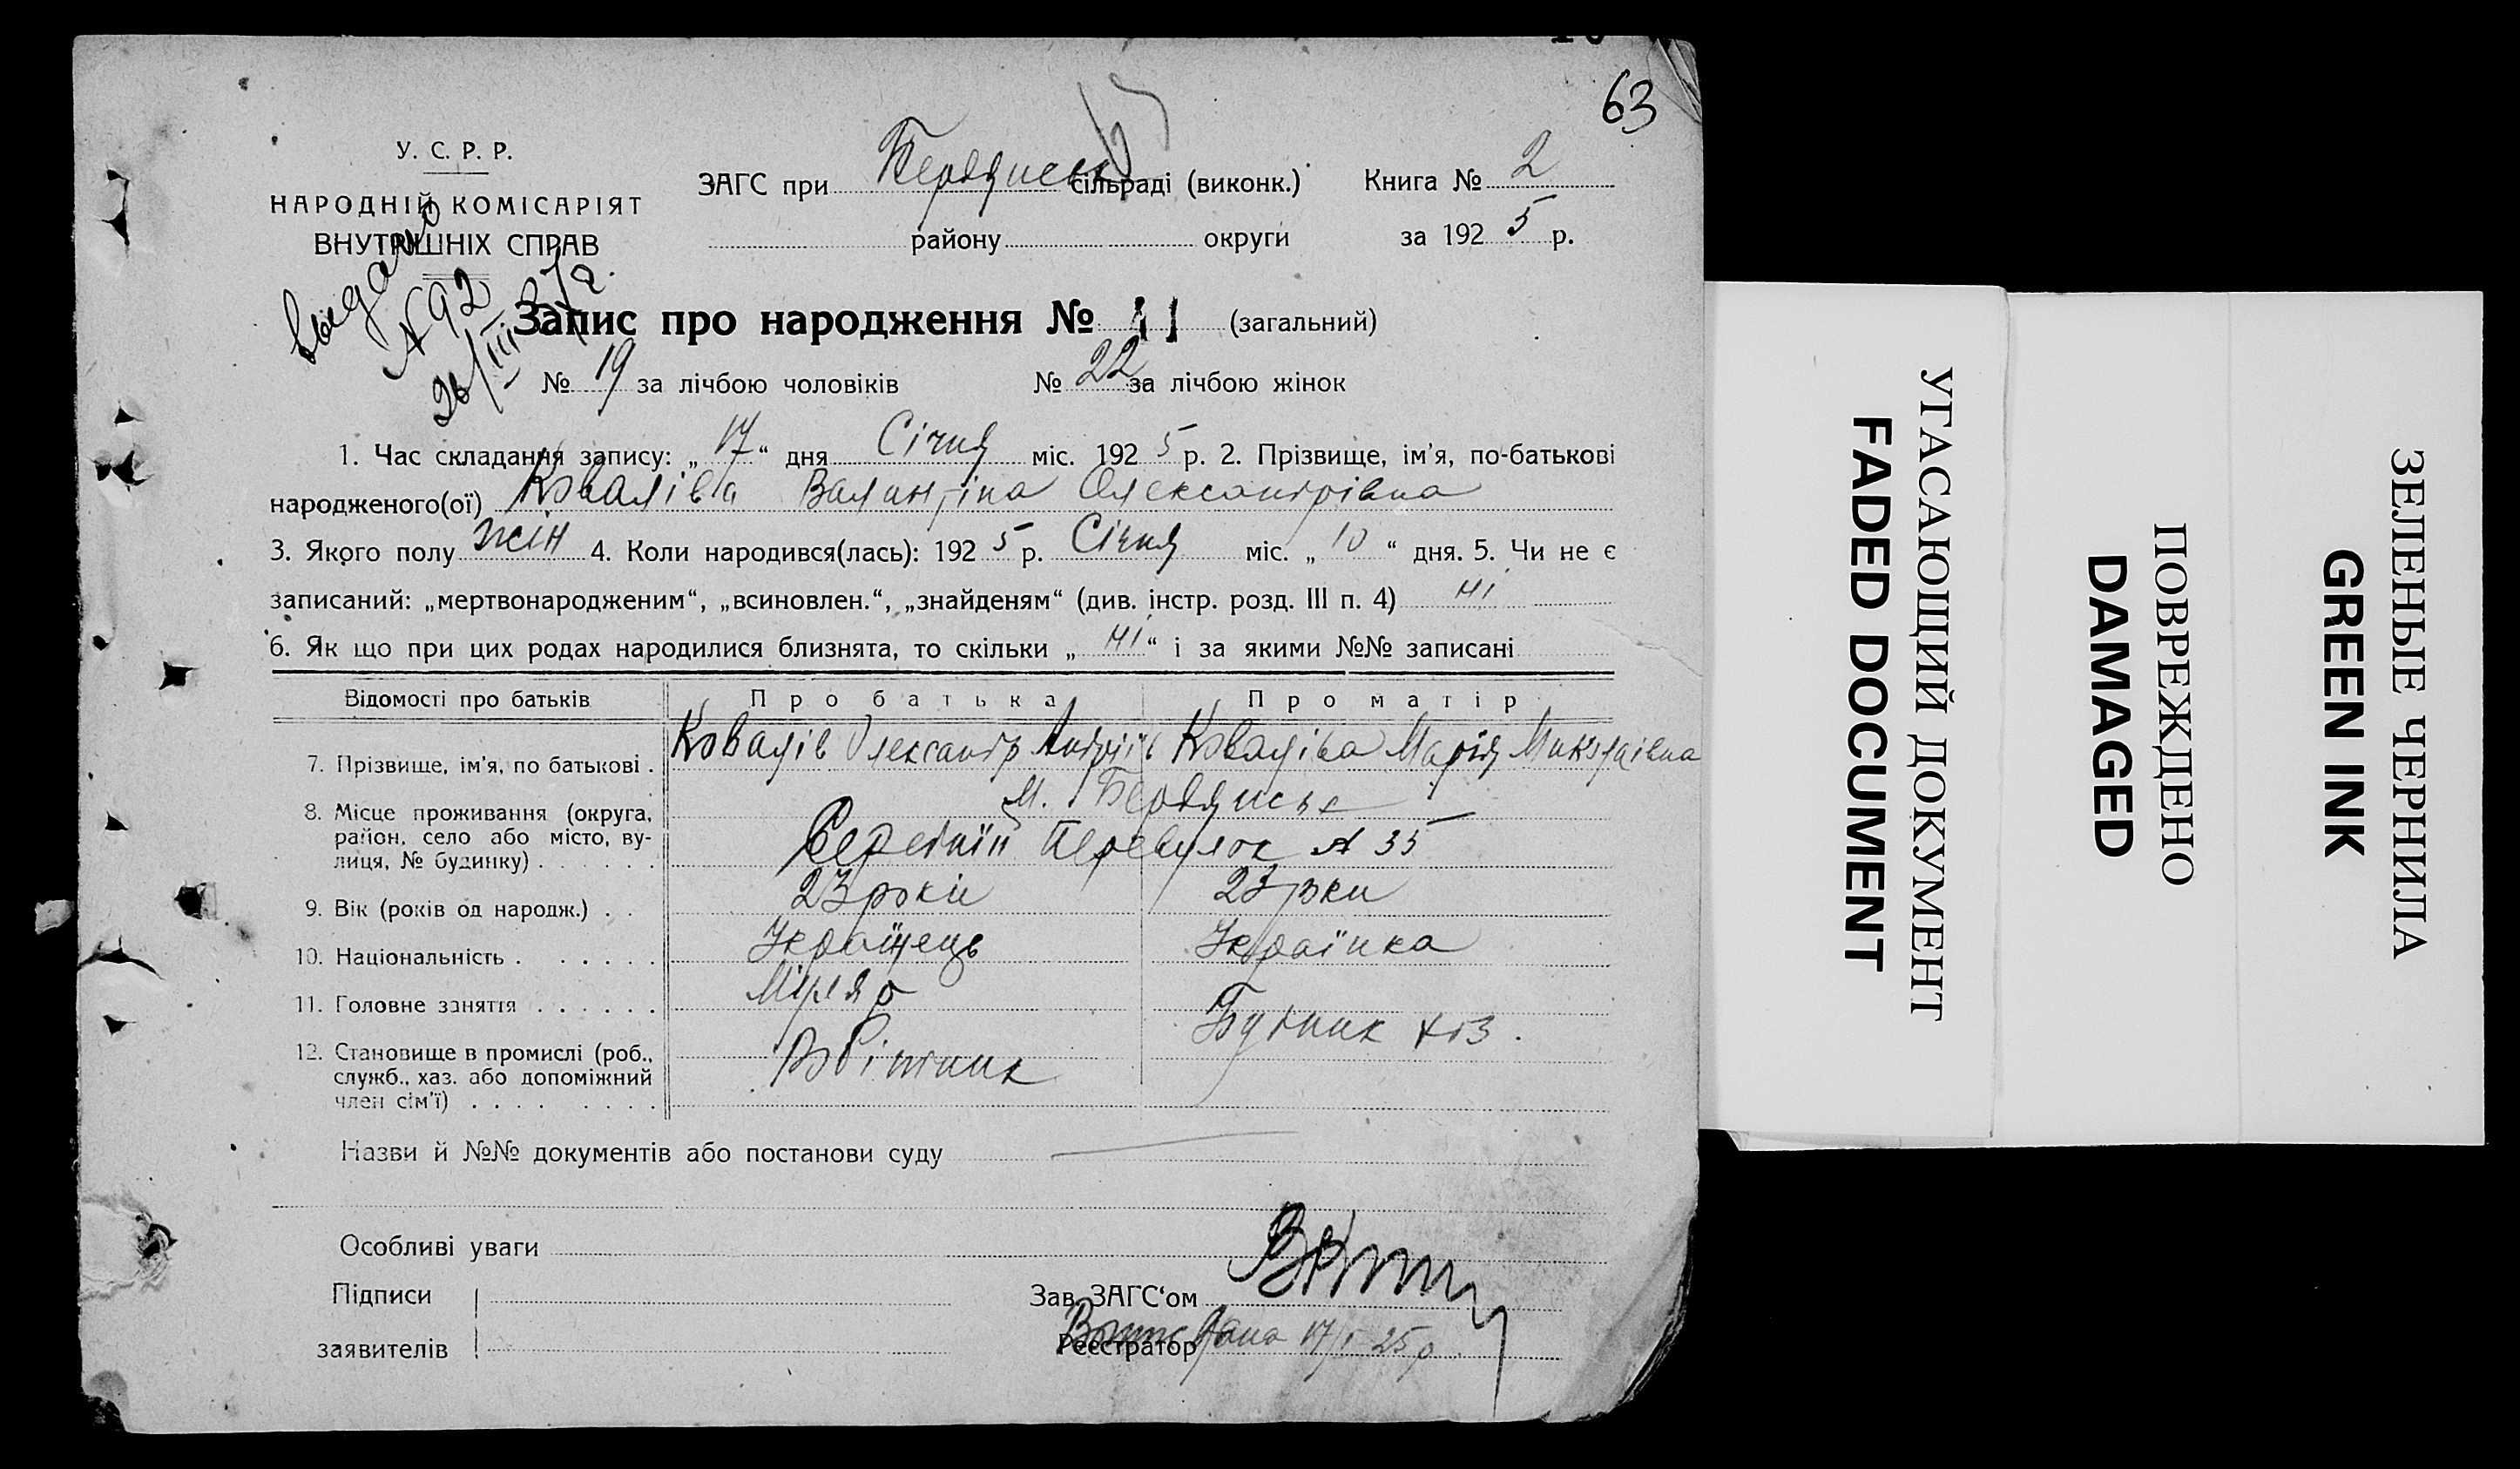 63
У. С. Р. Р.
НАРОДНІЙ КОМІСАРІЯТ
ВНУТРІШНІХ СПРАВ
ЗАГС при Бердянськ сільраді (виконк.) Книга № 2
району округи за 1925 р.
выдано
N 92
26/III
Запис про народження № 41 (загальний)
№ 19 за лічбою чоловіків № 22 за лічбою жінок
1. Час складання запису: „17“ дня Січня міс. 1925 р. 2. Прізвище, ім'я, по-батькові
народженого(ої) Ковалів а Валянтіна Олександрівна
3. Якого полу жін 4. Коли народився(лась): 1925 р. Січня міс. „10“ дня. 5. Чи не є
записаний: „мертвонародженим“, „всиновлен.“, „знайденям“ (див. інстр. розд. III п. 4) ні
6. Як що при цих родах народилися близнята, то скільки „ні“ і за якими №№ записані
Відомості про батьків Про батька Про матір
7. Прізвище, ім'я, по батькові . Ковалів Олександр Андріїв Ковалів а Марія Миколаівна
8. Місце проживання (округа, район, село або місто, вулиця, № будинку) . . . . . . м. Бердянськ
Середній Перевулок № 35
9. Вік (років од народж.) . . 23 роки 23 роки
10. Національність . . . . . . Українець Українка
11. Головне заняття . . . . . . Міряр
12. Становище в промислі (роб., служб., хаз. або допоміжний член сім'ї) . . . . . . . . Робітник
Назви й №№ документів або постанови суду
Особливі уваги
Підписи
заявителів
Зав. ЗАГС‘ом
Реєстратор
дана 17/I 25 р.
УГАСАЮЩИЙ ДОКУМЕНТ
FADED DOCUMENT
ПОВРЕЖДЕНО
DAMAGED
ЗЕЛЕНЫЕ ЧЕРНИЛА
GREEN INK